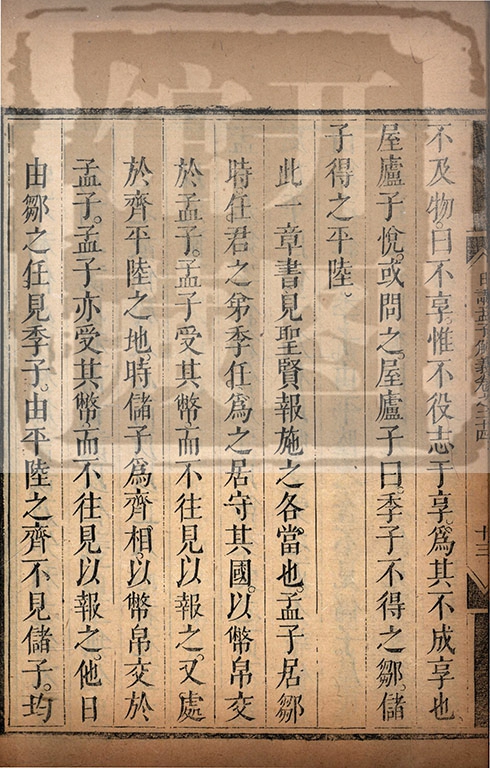 日講孟子解義卷之二十四
十三
不及物曰不享惟不役志于享爲其不成享也
屋廬子悅或問之屋廬子曰季子不得之鄒儲
子得之平陸
此一章書見聖賢報施之各當也孟子居鄒
時任君之弟季任爲之居守其國以幣帛交
於孟子孟子受其幣而不往見以報之又處
於齊平陸之地時儲子爲齊相以幣帛交於
孟子孟子亦受其幣而不往見以報之他日
由鄒之任見季子由平陸之齊不見儲子均